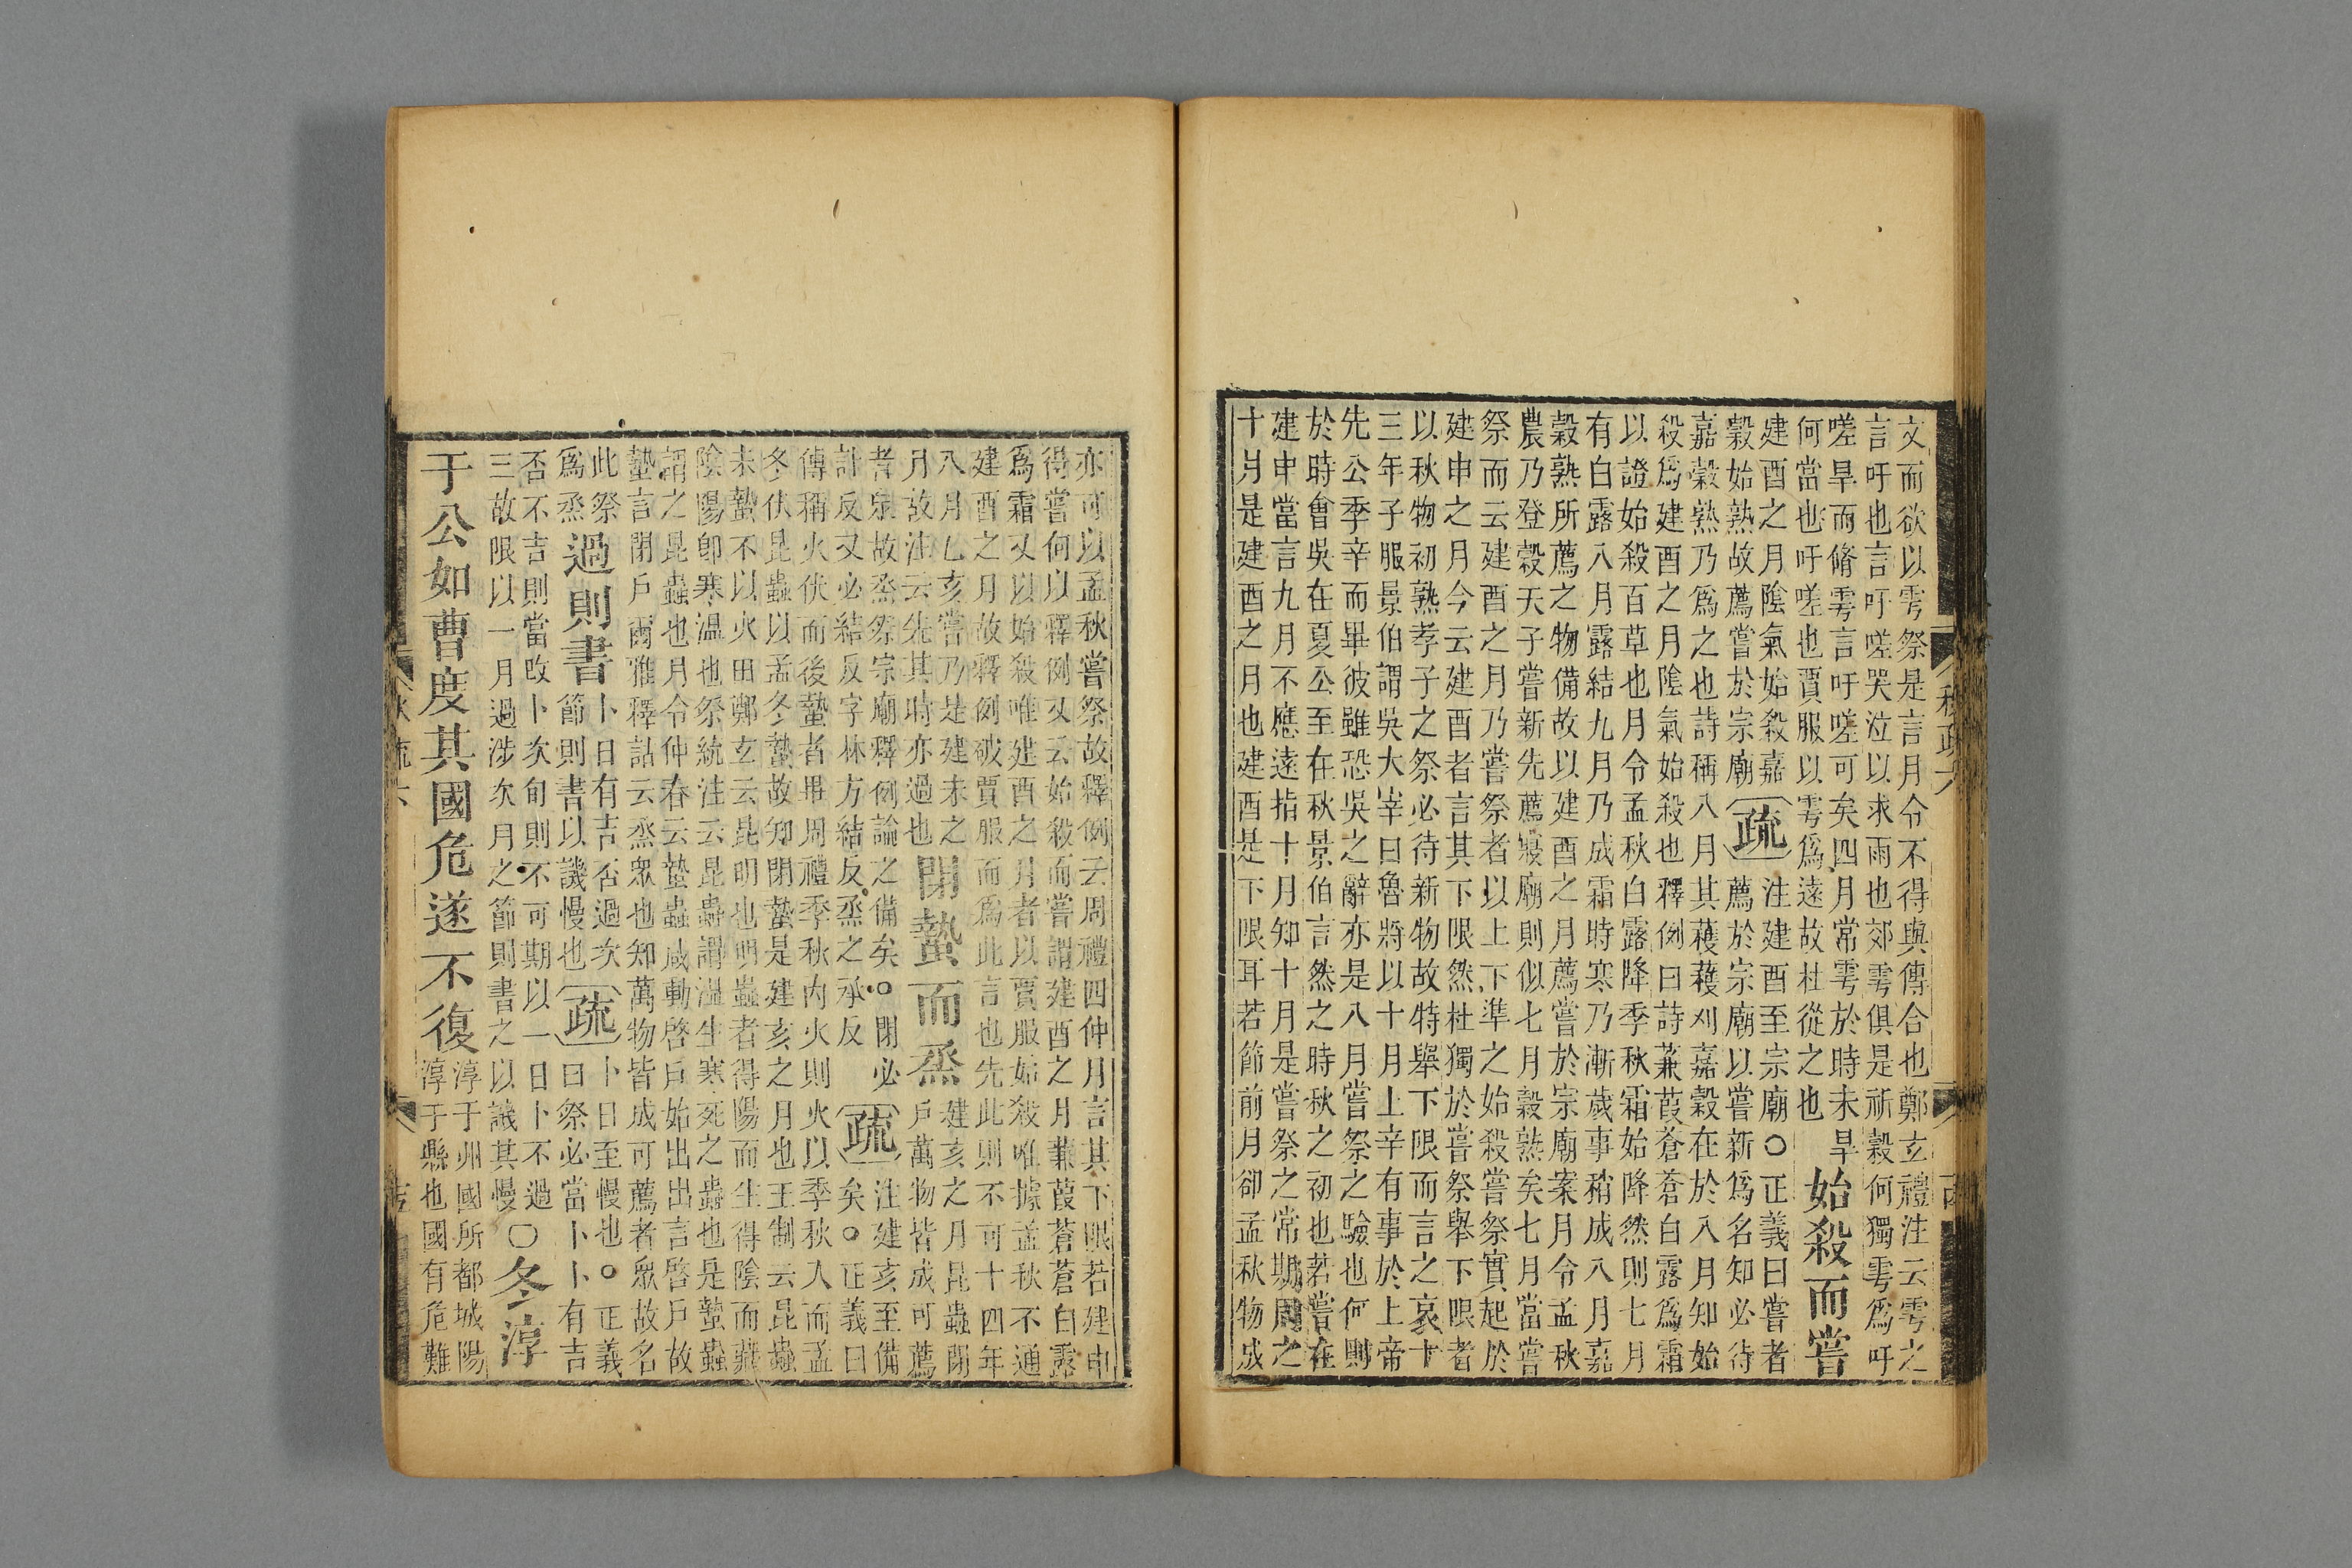 文而欲以雩祭是言月令不得與傳合也鄭玄禮注云雩之
言吁也言吁嗟哭泣以求雨也郊雩俱是祈穀何獨雩爲吁
嗟旱而脩雩言吁嗟可矣四月常雩於時未旱
何當也吁嗟也賈服以雩爲遠故杜從之也
始殺而嘗
建酉之月陰氣始殺嘉
穀始熟故薦嘗於宗廟
疏
注建酉至宗廟○正義曰嘗者
薦於宗廟以嘗新爲名知必待
嘉穀熟乃爲之也詩稱八月其穫穫刈嘉穀在於八月知始
殺爲建酉之月陰氣始殺也釋例曰詩蒹葭蒼蒼白露爲霜
以證始殺百草也月令孟秋白露降季秋霜始降然則七月
有白露八月露結九月乃成霜時寒乃漸歲事稍成八月嘉
穀熟所薦之物備故以建酉之月薦嘗於宗廟案月令孟秋
農乃登穀天子嘗新先薦寢廟則似七月穀熟矣七月當嘗
祭而云建酉之月乃嘗祭者以上下準之始殺嘗祭實起於
建申之月今云建酉者言其下限然杜獨於嘗祭舉下限者
以秋物初熟孝子之祭必待新物故特舉下限而言之哀十
三年子服景伯謂吳大宰曰魯將以十月上辛有事於上帝
先公季辛而畢彼雖恐吳之辭亦是八月嘗祭之驗也何則
於時會吳在夏公至在秋景伯言然之時秋之初也若嘗在
建申當言九月不應遠指十月知十月是嘗祭之常期周之
十月是建酉之月也建酉是下限耳若節前月卻孟秋物成
亦可以孟秋嘗祭故釋例云周禮四仲月言其下限若建申
得嘗何以釋例又云始殺而嘗謂建酉之月蒹葭蒼蒼白露
爲霜又以始殺唯建酉之月者以賈服始殺唯據孟秋不通
建酉之月故釋例破賈服而爲此言也先此則不可十四年
八月乙亥嘗乃是建未之
月故注云先其時亦過也
閉蟄而烝
建亥之月昆蟲閉
戶萬物皆成可薦
者衆故烝祭宗廟釋例論之備矣○閉必
計反又必結反字林方結反烝之承反
疏
注建亥至備
矣○正義曰
傳稱火伏而後蟄者畢周禮季秋內火則火以季秋入而孟
冬伏昆蟲以孟冬蟄故知閉蟄是建亥之月也王制云昆蟲
未蟄不以火田鄭玄云昆明也明蟲者得陽而生得陰而藏
陰陽卽寒溫也祭統注云昆蟲謂溫生寒死之蟲也是蟄蟲
謂之昆蟲也月令仲春云蟄蟲咸動啓戶始出出言啓戶故
蟄言閉戶爾雅釋詁云烝衆也知萬物皆成可薦者衆故名
此祭
爲烝
過則書
卜日有吉否過次
節則書以譏慢也
疏
卜日至慢也○正義
曰祭必當卜卜有吉
否不吉則當改卜次旬則不可期以一日卜不過
三故限以一月過涉次月之節則書之以譏其慢
○冬淳
于公如曹度其國危遂不復
淳于州國所都城陽
淳于縣也國有危難